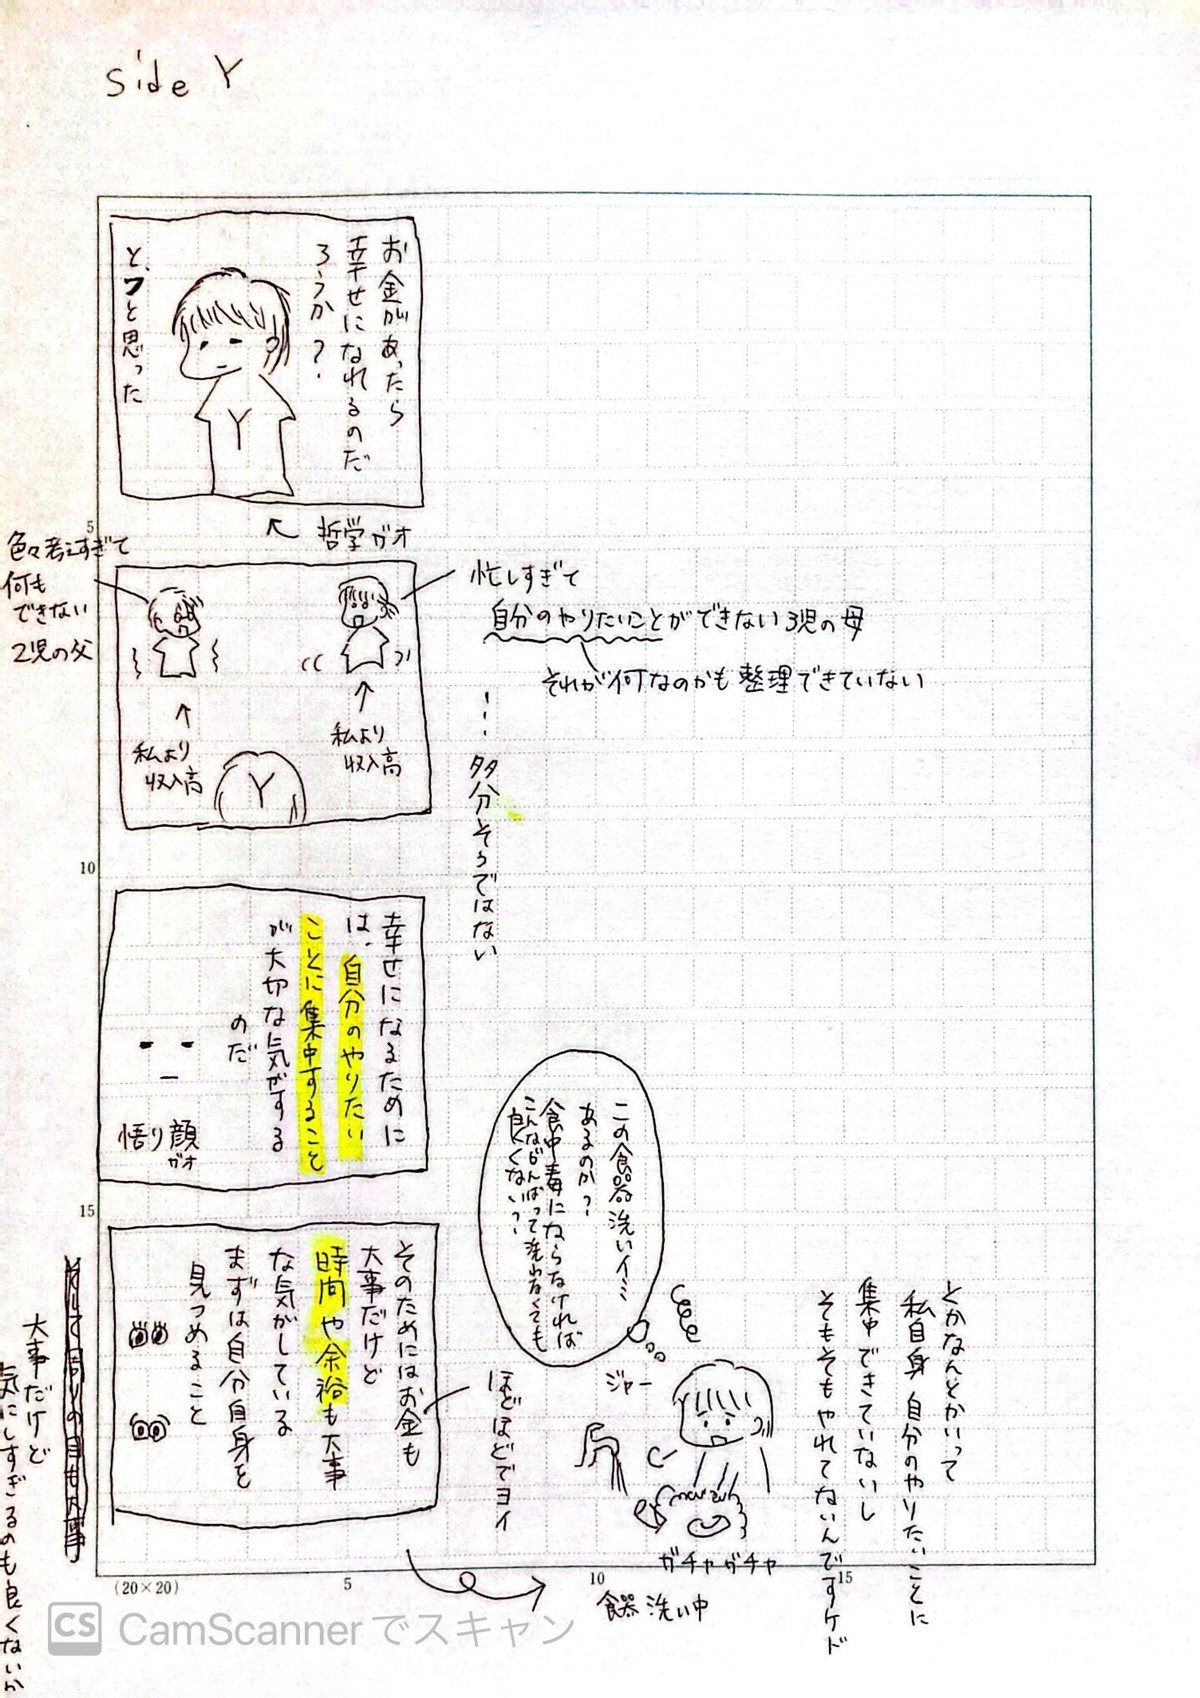 side Y
お金があったら
幸せになれるのだ
ろうか?
と、フと思った
Y
哲学ガオ
色々考えすぎて
何も
できない
2児の父
忙しすぎて
自分のやりたいことができない3児の母
それが何なのかも整理できていない
私より
収入高
私より
収入高
Y
…多分そうではない
幸せになるために
は、自分のやりたい
ことに集中すること
が大切な気がする
のだ
悟り顔
ガオ
そのためにはお金も
大事だけど
時間や余裕も大事
な気がしている
まずは自分自身を
見つめること
ほどほどでヨイ
大事だけど
気にしすぎるのも良くないか
この食器洗いイミ
あるのか?
食中毒にならなければ
こんながんばって洗わなくても
良くない?
ジャー
ガチャガチャ
食器洗い中
とかなんとかいって
私自身 自分のやりたいことに
集中できていないし
そもそもやれてないんですケド
5
10
15
(20×20)
5
10
15
CS CamScannerでスキャン